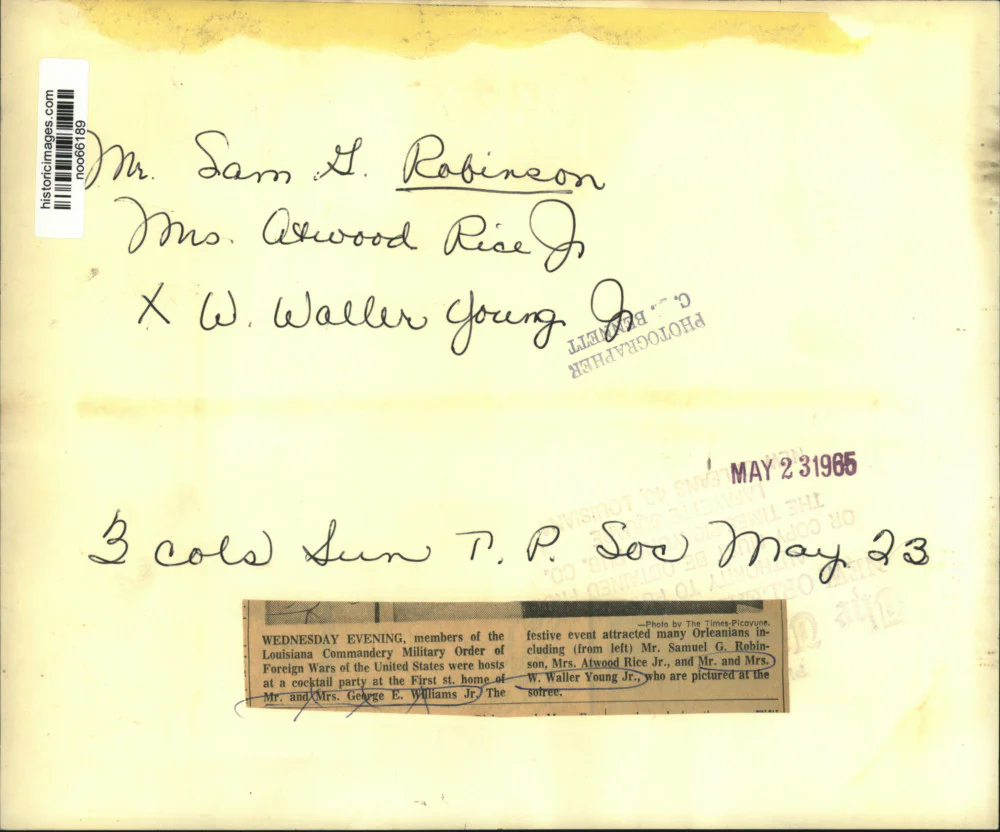 historicimages.com
noo66189
Mr. Sam G. Robinson
Mrs. Atwood Rice Jr
X W. Waller Young Jr
PHOTOGRAPHER
BENNETT
MAY 2 31965
3 cols Sun T. P. Soc May 23
—Photo by The Times-Picayune.
WEDNESDAY EVENING, members of the
Louisiana Commandery Military Order of
Foreign Wars of the United States were hosts
at a cocktail party at the First st. home of
Mr. and Mrs. George E. Williams Jr. The
festive event attracted many Orleanians in-
cluding (from left) Mr. Samuel G. Robin-
son, Mrs. Atwood Rice Jr., and Mr. and Mrs.
W. Waller Young Jr., who are pictured at the
soiree.